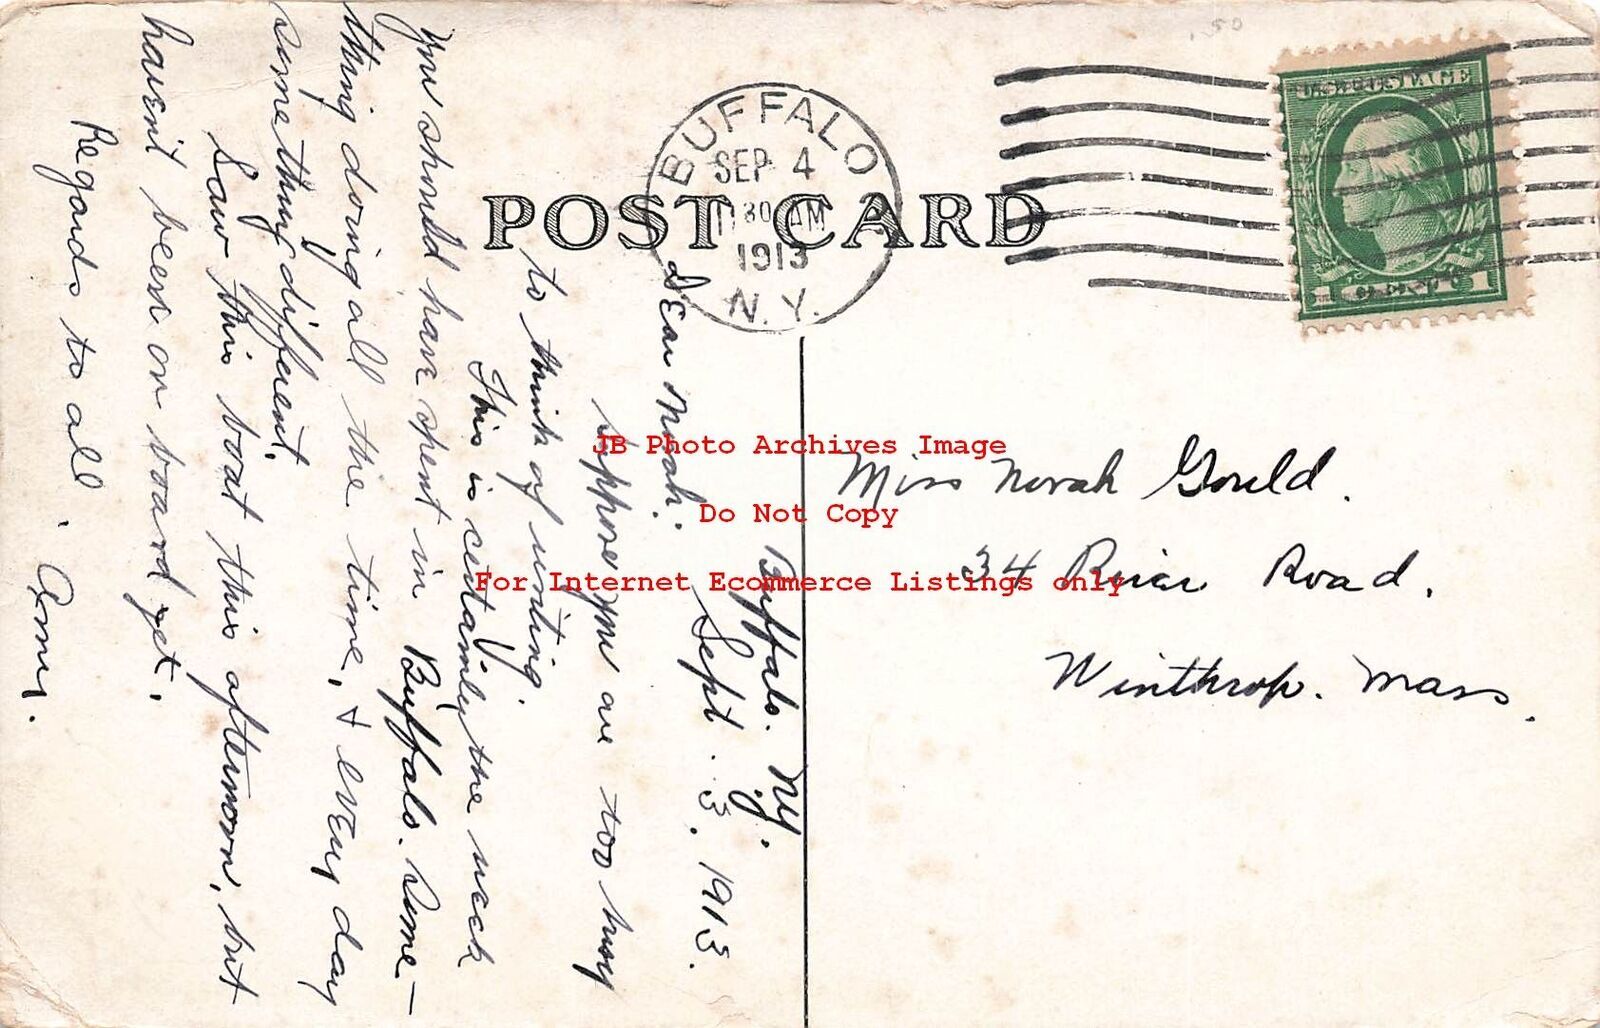 .50
BUFFALO
SEP 4
11 30 AM
1913
N.Y.
POST CARD
Buffalo. N.Y.
Sept. 3, 1913.
Dear Norah:
Suppose you are too busy
to think of writing.
This is certainly the week
you should have spent in Buffalo. Some-
thing doing all the time, & every day
something different.
Saw this boat this afternoon, but
haven't been on board yet.
Regards to all.
Miss Norah Gould.
34 River Road.
Winthrop. Mass.
JB Photo Archives Image
Do Not Copy
For Internet Ecommerce Listings only